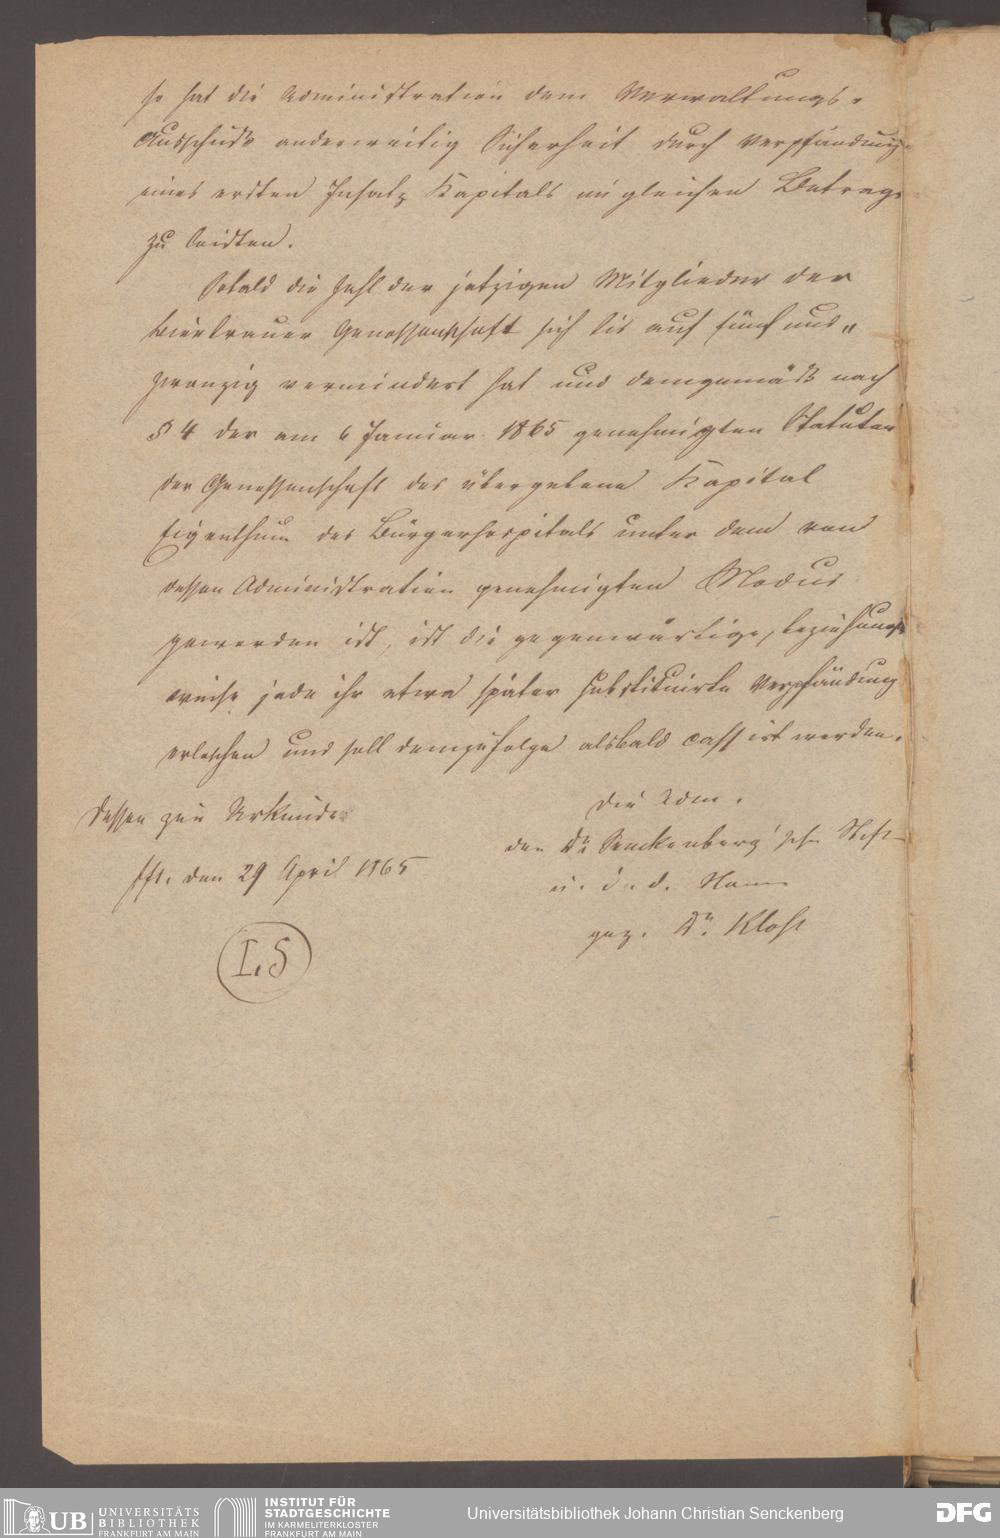 so hat die Administration dem Verwaltungs-
Ausschuss anderweitig Sicherheit durch Verpfändung
eines ersten Insatz Kapitals im gleichen Betrage
zu leisten.
Sobald die Zahl der jetzigen Mitglieder der
Bierbrauer Genossenschaft sich bis auf fünf und„
zwanzig vermindert hat und demgemäß nach
§ 4 der am 6 Januar 1865 genehmigten Statuten
der Genossenschaft das übergebene Kapital
Eigenthum des Bürgerhospitals unter dem von
dessen Administration genehmigten Modus
geworden ist, ist die gegenwärtige, beziehungs
weise jede ihr etwa später substituirte Verpfändung
erloschen und soll demzufolge alsbald cassirt werden.
Dessen zur Urkunde
Die Adm.
der Dr Senckenberg'sch. Stift
fft. den 29 April 1865
u. i. d. Namen
gez. Dr. Kloß
L.S
UB UNIVERSITÄTS
BIBLIOTHEK
FRANKFURT AM MAIN
INSTITUT FÜR
STADTGESCHICHTE
IM KARMELITERKLOSTER
FRANKFURT AM MAIN
Universitätsbibliothek Johann Christian Senckenberg
DFG